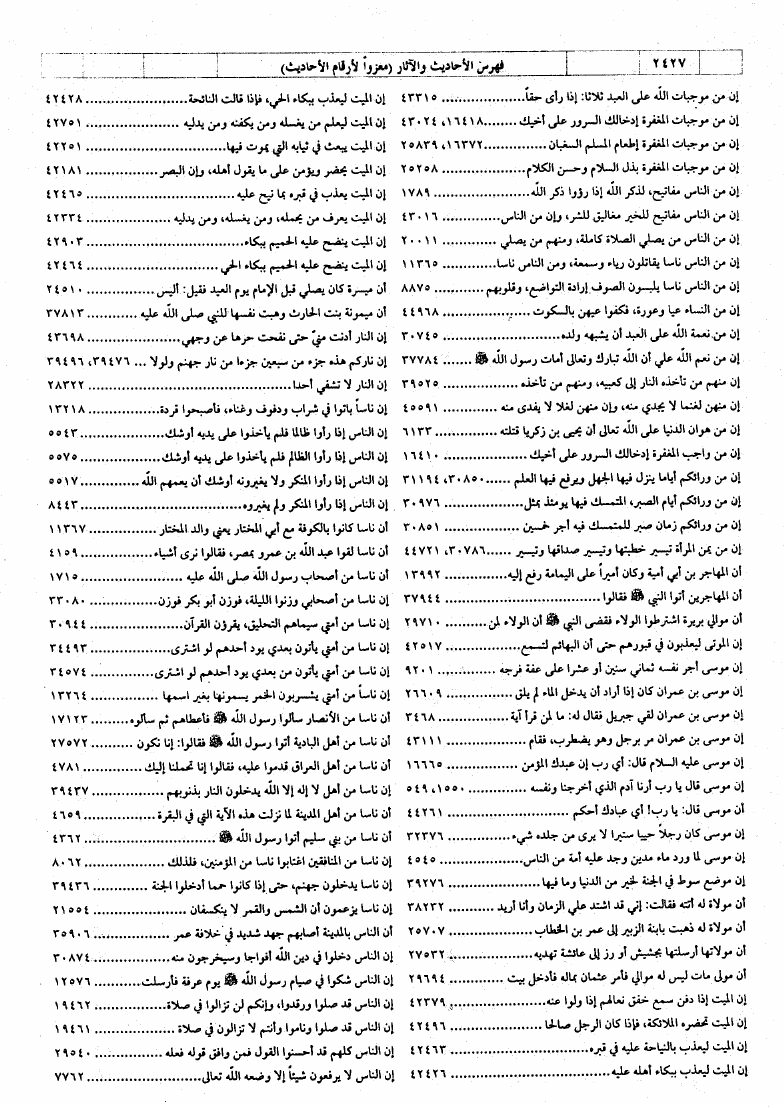 ٢٤٢٧
فهرس الأحاديث والآثار (معزواً لأرقام الأحاديث)
إن من موجبات الله على العبد ثلاثا: إذا رأى حقاً .......... ٤٣٣١٥
إن من موجبات المغفرة إدخالك السرور على أخيك ........ ١٦٤١٨، ٤٣٠٢٤
إن من موجبات المغفرة إطعام المسلم السغبان .......... ١٦٣٧٢، ٢٥٨٣٩
إن من موجبات المغفرة بذل السلام وحسن الكلام .......... ٢٥٢٥٨
إن من الناس مفاتيح، لذكر الله إذا رؤوا ذكر الله .......... ١٧٨٩
إن من الناس مفاتيح للخير مغاليق للشر، وإن من الناس .......... ٤٣٠١٦
إن من الناس من يصلي الصلاة كاملة، ومنهم من يصلي .......... ٢٠٠١١
إن من الناس ناسا يقاتلون رياء وسمعة، ومن الناس ناسا .......... ١١٣٦٥
إن من الناس ناسا يلبسون الصوف إرادة التواضع، وقلوبهم .......... ٨٨٧٥
إن من النساء عيا وعورة، فكفوا عيهن بالسكوت .......... ٤٤٩٦٨
إن من نعمة الله على العبد أن يشبهه ولده .......... ٣٠٧٤٥
إن من نعم الله علي أن الله تبارك وتعالى أمات رسول الله ﷺ ....... ٣٧٧٨٤
إن منهم من تأخذه النار إلى كعبيه، ومنهم من تأخذه .......... ٣٩٥٢٥
إن منهن لغنما لا يجدي منه، وإن منهن لغلا لا يفدى منه .......... ٤٥٥٩١
إن من هوان الدنيا على الله تعالى أن يحيى بن زكريا قتلته .......... ٦١٣٣
إن من واجب المغفرة إدخالك السرور على أخيك .......... ١٦٤١٠
إن من ورائكم أياما ينزل فيها الجهل ويرفع فيها العلم ....... ٣٠٨٥٠، ٣١١٩٤
إن من ورائكم أيام الصبر، المتمسك فيها يومئذ بمثل .......... ٣٠٩٧٦
إن من ورائكم زمان صبر للمتمسك فيه أجر خمسين .......... ٣٠٨٥١
إن من يمن المرأة تيسير خطبتها وتيسير صداقها وتيسير ...... ٣٠٧٨٦، ٤٤٧٢١
أن المهاجر بن أبي أمية وكان أميراً على اليمامة رفع إليه .......... ١٣٩٩٢
أن المهاجرين أتوا النبي ﷺ فقالوا .......... ٣٧٩٤٤
أن موالي بريرة اشترطوا الولاء فقضى النبي ﷺ أن الولاء لمن .......... ٢٩٧١٠
إن الموتى ليعذبون في قبورهم حتى أن البهائم لتسمع .......... ٤٢٥١٧
إن موسى أجر نفسه ثماني سنين أو عشرا على عفة فرجه .......... ٩٢٠١
إن موسى بن عمران كان إذا أراد أن يدخل الماء لم يلق .......... ٢٦٦٠٩
إن موسى بن عمران لقي جبريل فقال له: ما لمن قرأ آية .......... ٣٤٦٨
إن موسى بن عمران مر برجل وهو يضطرب، فقام .......... ٤٣١١١
إن موسى عليه السلام قال: أي رب إن عبدك المؤمن .......... ١٦٦٦٥
إن موسى قال يا رب أرنا آدم الذي أخرجنا ونفسه .......... ١٥٥٠، ٥٤٩
أن موسى قال: يا رب! أي عبادك أحكم .......... ٤٤٢٦١
إن موسى كان رجلاً حييا ستيرا لا يرى من جلده شيء .......... ٣٢٣٧٦
إن موسى لما ورد ماء مدين وجد عليه أمة من الناس .......... ٤٥٤٥
إن موضع سوط في الجنة لخير من الدنيا وما فيها .......... ٣٩٢٧٦
أن مولاة له أتته فقالت: إني قد اشتد علي الزمان وأنا أريد .......... ٣٨٢٣٢
أن مولاة له ذهبت بابنة الزبير إلى عمر بن الخطاب .......... ٢٥٧٠٧
أن مولاتها أرسلتها بجشيش أو رز إلى عائشة تهديه .......... ٢٧٥٣٢
أن مولى مات ليس له موالي فأمر عثمان بماله فأدخل بيت .......... ٢٩٦٩٤
إن الميت إذا دفن سمع خفق نعالهم إذا ولوا عنه .......... ٤٢٣٧٩
إن الميت تحضره الملائكة، فإذا كان الرجل صالحا .......... ٤٢٤٩٦
إن الميت ليعذب بالنياحة عليه في قبره .......... ٤٢٤٦٣
إن الميت ليعذب ببكاء أهله عليه .......... ٤٢٤٢٦
إن الميت ليعذب ببكاء الحي، فإذا قالت النائحة .......... ٤٢٤٢٨
إن الميت ليعلم من يغسله ومن يكفنه ومن يدليه .......... ٤٢٧٥١
إن الميت يبعث في ثيابه التي يموت فيها .......... ٤٢٢٥١
إن الميت يحضر ويؤمن على ما يقول أهله، وإن البصر .......... ٤٢١٨١
إن الميت يعذب في قبره بما نيح عليه .......... ٤٢٤٦٥
إن الميت يعرف من يحمله، ومن يغسله، ومن يدليه .......... ٤٢٣٣٤
إن الميت ينضح عليه الحميم ببكاء .......... ٤٢٩٠٣
إن الميت ينضح عليه الحميم ببكاء الحي .......... ٤٢٤٦٤
أن ميسرة كان يصلي قبل الإمام يوم العيد فقيل: أليس .......... ٢٤٥١٠
أن ميمونة بنت الحارث وهبت نفسها للنبي صلى الله عليه .......... ٣٧٨١٣
إن النار أدنت مني حتى نفحت حرها عن وجهي .......... ٤٣٦٩٨
إن ناركم هذه جزء من سبعين جزءا من نار جهنم ولولا ... ٣٩٤٧٦، ٣٩٤٩٦
إن النار لا تشفي أحدا .......... ٢٨٣٢٢
إن ناساً باتوا في شراب ودفوف وغناء، فأصبحوا قردة .......... ١٣٢١٨
إن الناس إذا رأوا ظالما فلم يأخذوا على يديه أوشك .......... ٥٥٤٣
إن الناس إذا رأوا الظالم فلم يأخذوا على يديه أوشك .......... ٥٥٧٥
إن الناس إذا رأوا المنكر ولا يغيرونه أوشك أن يعمهم الله .......... ٥٥١٧
إن الناس إذا رأوا المنكر ولم يغيروه .......... ٨٤٤٣
أن ناسا كانوا بالكوفة مع أبي المختار يعني والد المختار .......... ١١٣٦٧
أن ناسا لقوا عبد الله بن عمرو بمصر، فقالوا نرى أشياء .......... ٤١٥٩
أن ناسا من أصحاب رسول الله صلى الله عليه .......... ١٧١٥
إن ناسا من أصحابي وزنوا الليلة، فوزن أبو بكر فوزن .......... ٣٣٠٨٠
إن ناسا من أمتي سيماهم التحليق، يقرؤن القرآن .......... ٣٠٩٤٤
إن ناسا من أمتي يأتون بعدي يود أحدهم لو اشترى .......... ٣٤٤٩٣
إن ناسا من أمتي يأتون من بعدي يود أحدهم لو اشترى .......... ٣٤٥٧٤
إن ناساً من أمتي يشسربون الخمر يسمونها بغير اسمها .......... ١٣٢٦٤
أن ناسا من الأنصار سألوا رسول الله ﷺ فأعطاهم ثم سألوه .......... ١٧١٢٣
أن ناسا من أهل البادية أتوا رسول الله ﷺ فقالوا: إنا نكون .......... ٢٧٥٧٢
أن ناسا من أهل العراق قدموا عليه، فقالوا إنا تحملنا إليك .......... ٤٧٨١
إن ناسا من أهل لا إله إلا الله يدخلون النار بذنوبهم .......... ٣٩٤٣٧
أن ناسا من أهل المدينة لما نزلت هذه الآية التي في البقرة .......... ٤٦٥٩
أن ناسا من بني سليم أتوا رسول الله ﷺ .......... ٤٣٦٢
إن ناسا من المنافقين اغتابوا ناسا من المؤمنين، فلذلك .......... ٨٠٦٢
إن ناسا يدخلون جهنم، حتى إذا كانوا حمما أدخلوا الجنة .......... ٣٩٤٣٦
إن ناسا يزعمون أن الشمس والقمر لا ينكسفان .......... ٢١٥٥٤
أن الناس بالمدينة أصابهم جهد شديد في خلافة عمر .......... ٣٥٩٠٦
إن الناس دخلوا في دين الله أفواجا وسيخرجون منه .......... ٣٠٨٧٤
إن الناس شكوا في صيام رسول الله ﷺ يوم عرفة فأرسلت .......... ١٢٥٧٦
إن الناس قد صلوا ورقدوا، وإنكم لن تزالوا في صلاة .......... ١٩٤٦٢
إن الناس قد صلوا وناموا وأنتم لا تزالون في صلاة .......... ١٩٤٦١
إن الناس كلهم قد أحسنوا القول فمن وافق قوله فعله .......... ٢٩٥٤٠
إن الناس لا يرفعون شيئاً إلا وضعه الله تعالى .......... ٧٧٦٢